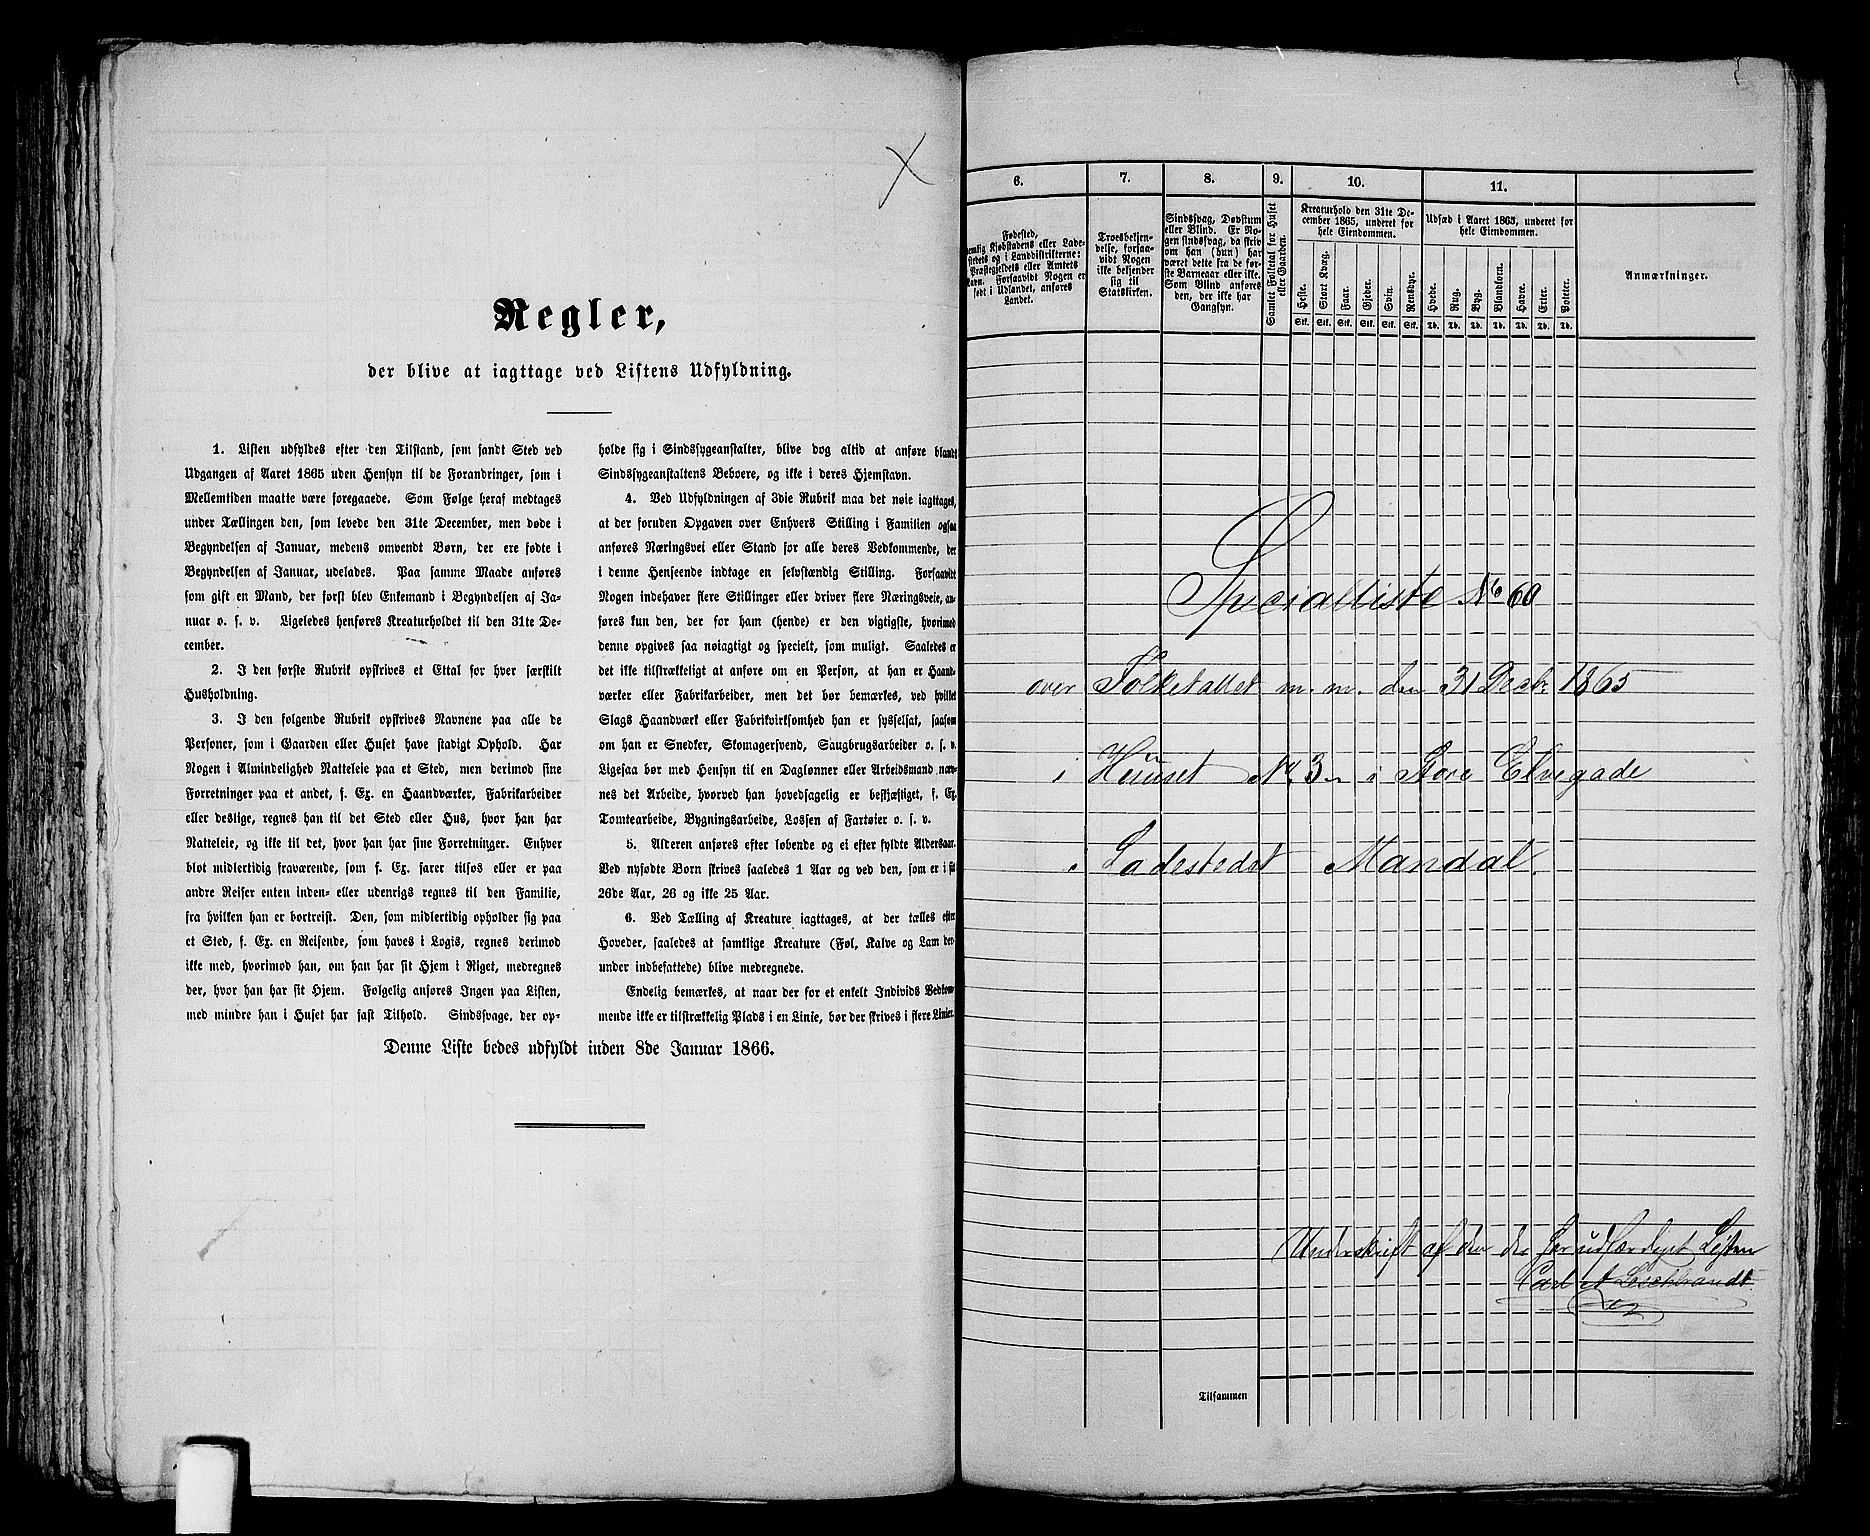 Regler,
der blive at iagttage ved Listens Udfyldning.
1. Listen udfyldes efter den Tilstand, som fandt Sted ved
Udgangen af Aaret 1865 uden Hensyn til de Forandringer, som i
Mellemtiden maatte være foregaaede. Som Følge heraf medtages
under Tællingen den, som levede den 31te December, men døde i
Begyndelsen af Januar, medens omvendt Børn, der ere fødte i
Begyndelsen af Januar, udelades. Paa samme Maade anføres
som gift en Mand, der først blev Enkemand i Begyndelsen af Ja-
nuar o. s. v. Ligeledes henføres Kreaturholdet til den 31te De-
cember.
2. I den første Rubrik opskrives et Ettal for hver særskilt
Husholdning.
3. I den følgende Rubrik opskrives Navnene paa alle de
Personer, som i Gaarden eller Huset have stadigt Ophold. Har
Nogen i Almindelighed Natteleie paa et Sted, men derimod sine
Forretninger paa et andet, f. Ex. en Haandværker, Fabrikarbeider
eller deslige, regnes han til det Sted eller Hus, hvor han har
Natteleie, og ikke til det, hvor han har sine Forretninger. Enhver
blot midlertidig fraværende, som f. Ex. farer tilsøs eller er paa
andre Reiser enten inden- eller udenrigs regnes til den Familie,
fra hvilken han er bortreist. Den, som midlertidig opholder sig paa
et Sted, f. Ex. en Reisende, som haves i Logis, regnes derimod
ikke med, hvorimod han, om han har sit Hjem i Riget, medregnes
der, hvor han har sit Hjem. Følgelig anføres Ingen paa Listen,
med mindre han i Huset har fast Tilhold. Sindssvage, der op-
holde sig i Sindssygeanstalter, blive dog altid at anføre blandt
Sindssygeanstaltens Beboere, og ikke i deres Hjemstavn.
4. Ved Udfyldningen af 3die Rubrik maa det nøie iagttages,
at der foruden Opgaven over Enhvers Stilling i Familien ogsaa
anføres Næringsvei eller Stand for alle deres Vedkommende, der
i denne Henseende indtage en selvstændig Stilling. Forsaavidt
Nogen indehaver flere Stillinger eller driver flere Næringsveie, an-
føres kun den, der for ham (hende) er den vigtigste, hvorimod
denne opgives saa nøiagtigt og specielt, som muligt. Saaledes er
det ikke tilstrækkeligt at anføre om en Person, at han er Haand-
værker eller Fabrikarbeider, men det bør bemærkes, ved hvilket
Slags Haandværk eller Fabrikvirksomhed han er sysselsat, saasom
om han er Snedker, Skomagersvend, Saugbrugsarbeider o. s. v.
Ligesaa bør med Hensyn til en Daglønner eller Arbeidsmand næv-
nes det Arbeide, hvorved han hovedsagelig er beskjæftiget, f. Ex.
Tomtearbeide, Bygningsarbeide, Lossen af Fartøier o. s. v.
5. Alderen anføres efter løbende og ei efter fyldte Aldersaar.
Ved nyfødte Børn skrives saaledes 1 Aar og ved den, som er i sit
26de Aar, 26 og ikke 25 Aar.
6. Ved Tælling af Kreature iagttages, at der tælles efter
Hoveder, saaledes at samtlige Kreature (Føl, Kalve og Lam der-
under indbefattede) blive medregnede.
Endelig bemærkes, at naar der for et enkelt Individs Vedkom-
mende ikke er tilstrækkelig Plads i en Linie, bør der skrives i flere Linier.
Denne Liste bedes udfyldt inden 8de Januar 1866.
6. 7. 8. 9. 10. 11.
Fødested,
nemlig Kjøbstadens eller Lade-
stedets og i Landdistrikterne:
Præstegjeldets eller Amtets
Navn. Forsaavidt Nogen er
født i Udlandet, anføres
Landet.
Troesbekjen-
delse, forsaa-
vidt Nogen
ikke bekjender
sig til
Statskirken.
Sindssvag, Døvstum
eller Blind. Er No-
gen sindssvag, da skriv
om han (hun) har
været dette fra de før-
ste Barneaar eller ikke.
Som Blind anføres
den, der ikke har
Gangsyn.
Samlet Folketal for Huset
eller Gaarden.
Kreaturhold den 31te De-
cember 1865, underet for
hele Eiendommen.
Heste. Stort Kvæg. Faar. Gjeder. Svin. Rensdyr.
Stk. Stk. Stk. Stk. Stk. Stk.
Udsæd i Aaret 1865, underet for
hele Eiendommen.
Hvede. Rug. Byg. Blandkorn. Havre. Erter. Poteter.
Td. Td. Td. Td. Td. Td. Td.
Anmærkninger.
Specialliste No 60
over Folketallet m. m. den 31 Decbr 1865
i Huuset No 3 i Store Elvegade
i Ladestedet Mandal.
Underskrift af den der har udfærdiget Listen
Carl
Tilsammen